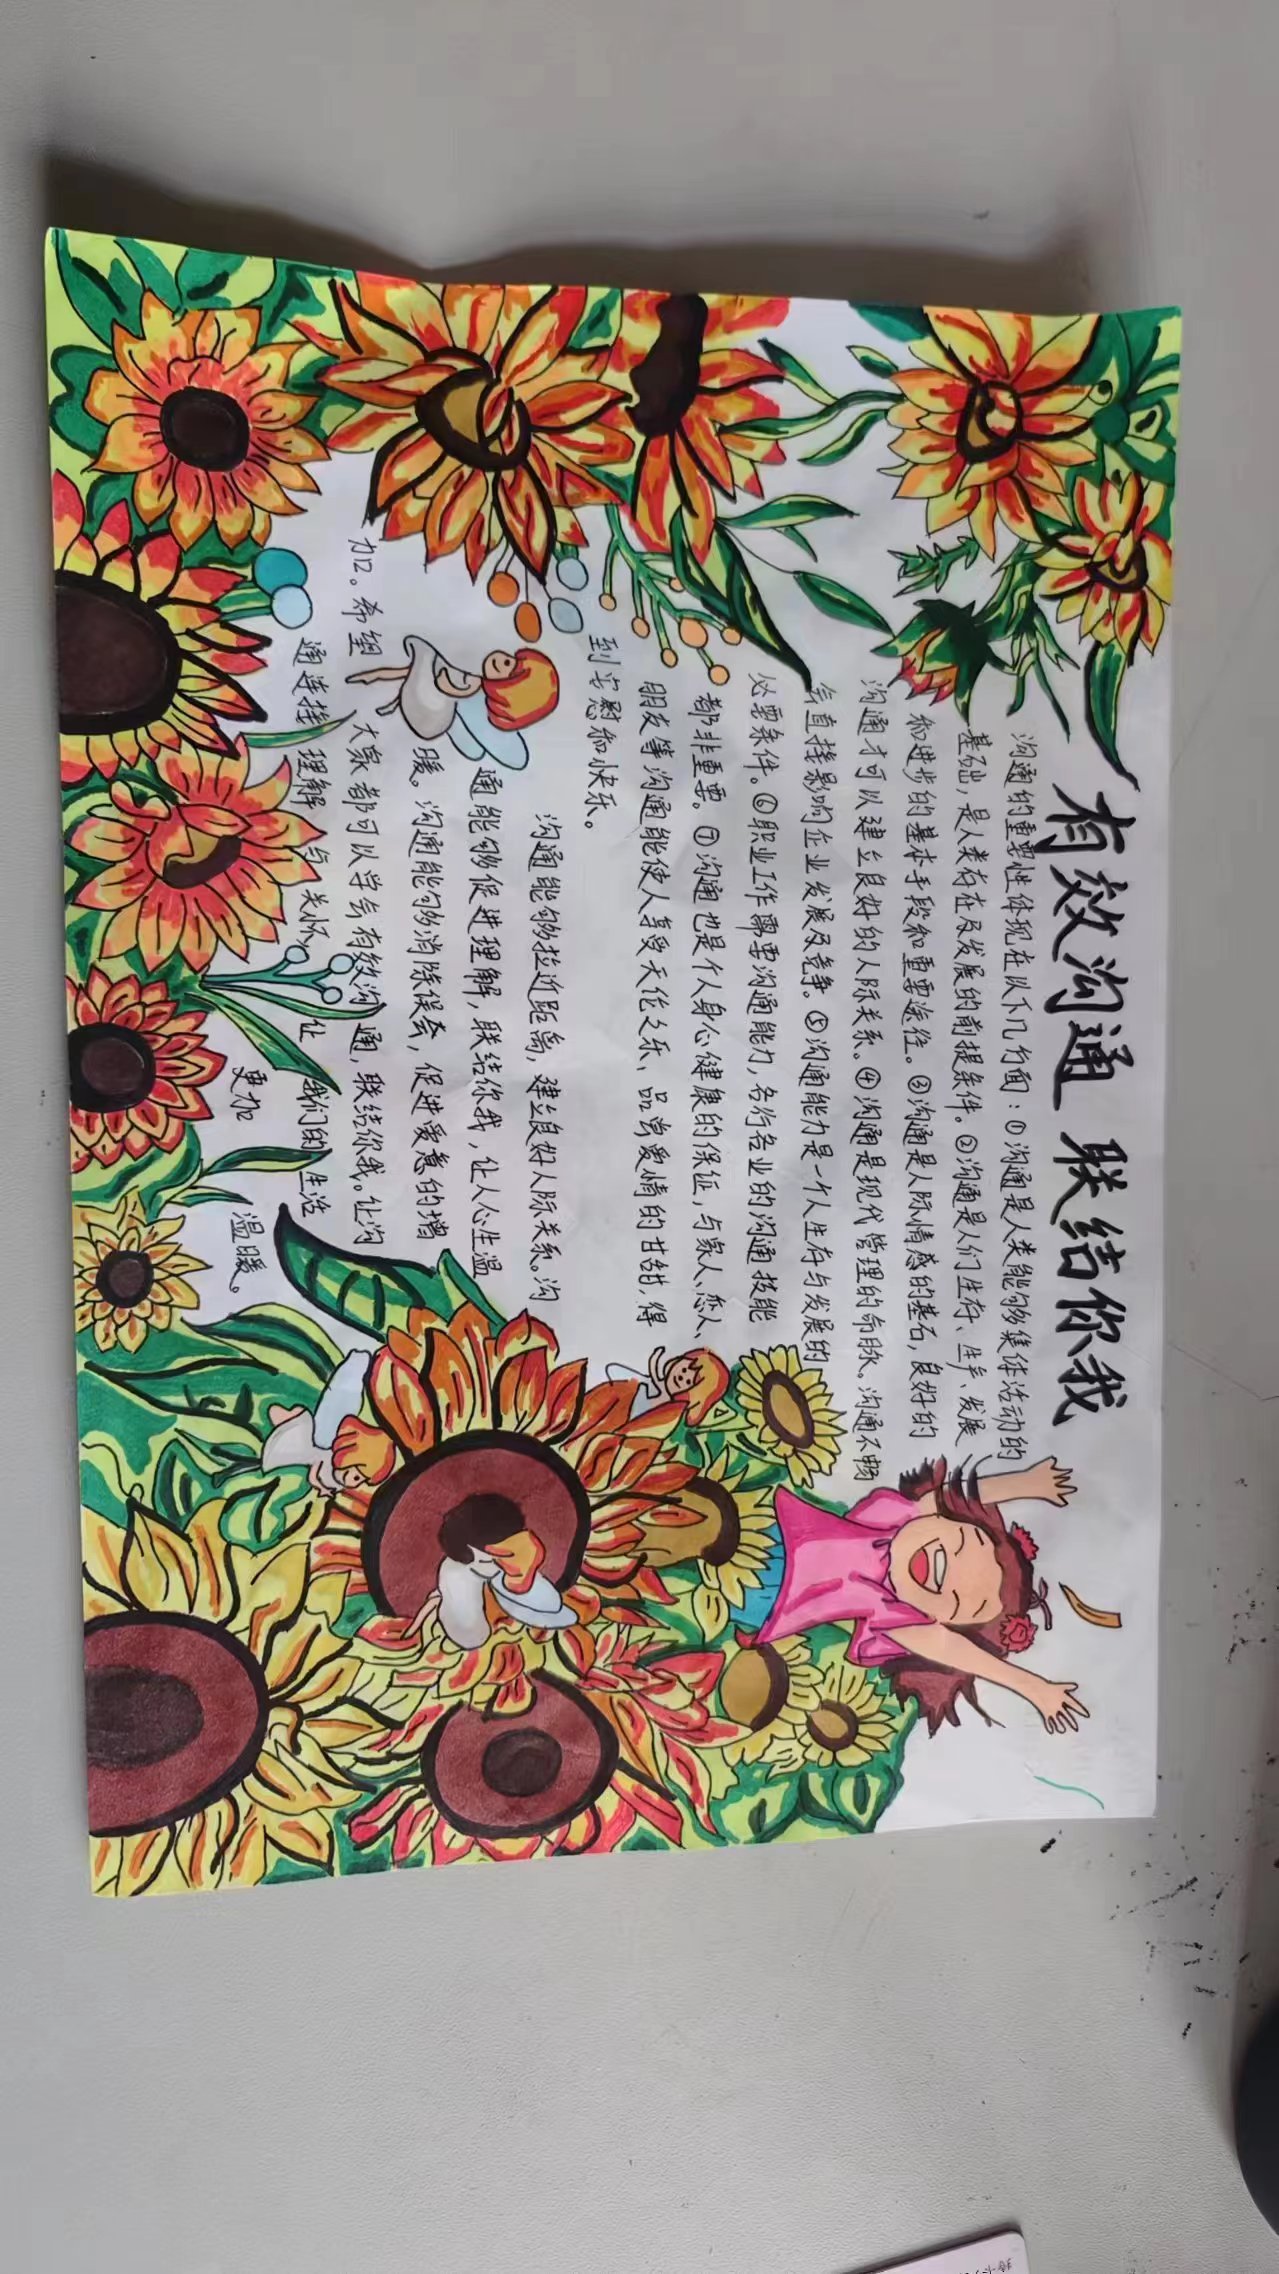 有效沟通 联结你我
沟通的重要性体现在以下几方面：①沟通是人类能够集体活动的
基础，是人类存在及发展的前提条件。②沟通是人们生存、生产、发展
和进步的基本手段和重要途径。③沟通是人际情感的基石，良好的
沟通才可以建立良好的人际关系。④沟通是现代管理的命脉。沟通不畅
会直接影响企业发展及竞争。⑤沟通能力是一个人生存与发展的
必要条件。⑥职业工作需要沟通能力，各行各业的沟通技能
都非重要。⑦沟通也是个人身心健康的保证，与家人、恋人、
朋友等沟通能使人享受天伦之乐、品尝爱情的甘甜，得
到安慰和快乐。
沟通能够拉近距离，建立良好人际关系。沟
通能够促进理解，联结你我，让人心生温
暖。沟通能够消除误会，促进爱意的增
加。希望 大家都可以学会有效沟通，联结你我。让沟
通连接 理解与关怀，让 我们的生活
更加 温暖。